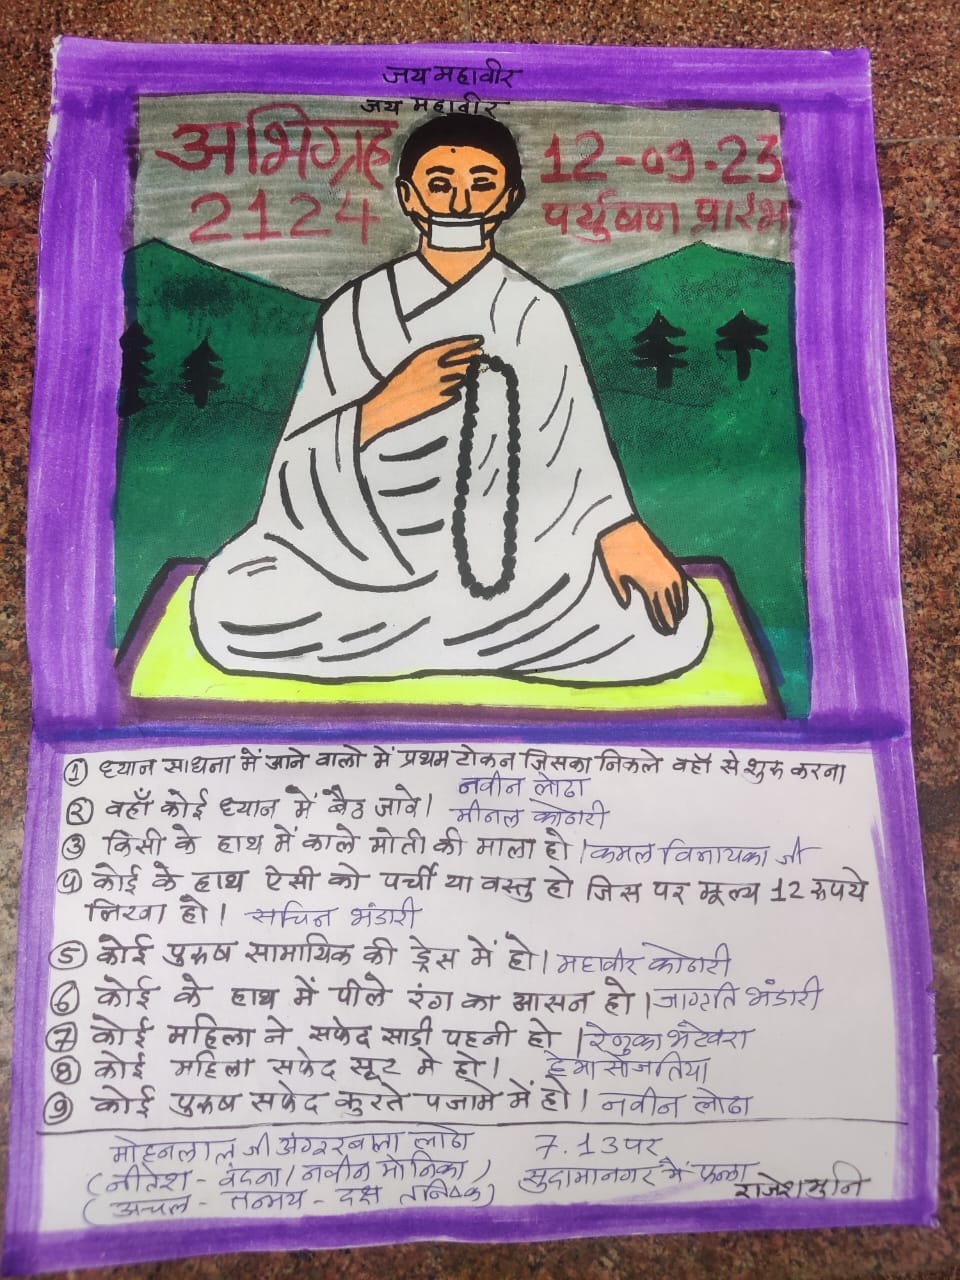 जय महावीर
जय महावीर
अभिग्रह 12-09-23
2124 पर्युषण प्रारंभ
① ध्यान साधना में आने वालो में प्रथम टोकन जिसका निकले वहाँ से शुरू करना
नवीन लोढा
② वहाँ कोई ध्यान में बैठ जावे। मीनल कोठारी
③ किसी के हाथ में काले मोती की माला हो। कमल विनायका जी
④ कोई के हाथ ऐसी को पर्ची या वस्तु हो जिस पर मूल्य 12 रुपये
लिखा हो। सचिन भंडारी
⑤ कोई पुरुष सामायिक की ड्रेस में हो। महावीर कोठारी
⑥ कोई के हाथ में पीले रंग का आसन हो। जागृति भंडारी
⑦ कोई महिला ने सफेद साडी पहनी हो। रेणुका भटेवरा
⑧ कोई महिला सफेद सूट मे हो। हेमा सोजतिया
⑨ कोई पुरुष सफेद कुरते पजामे में हो। नवीन लोढा
मोहनलाल जी अंगूरबाला लोढा 7.13 पर
(नीतेश - वंदना / नवीन मोनिका) सुदामानगर में फला
(अचल - तन्मय - दक्ष तनिष्क) राजेशमुनि